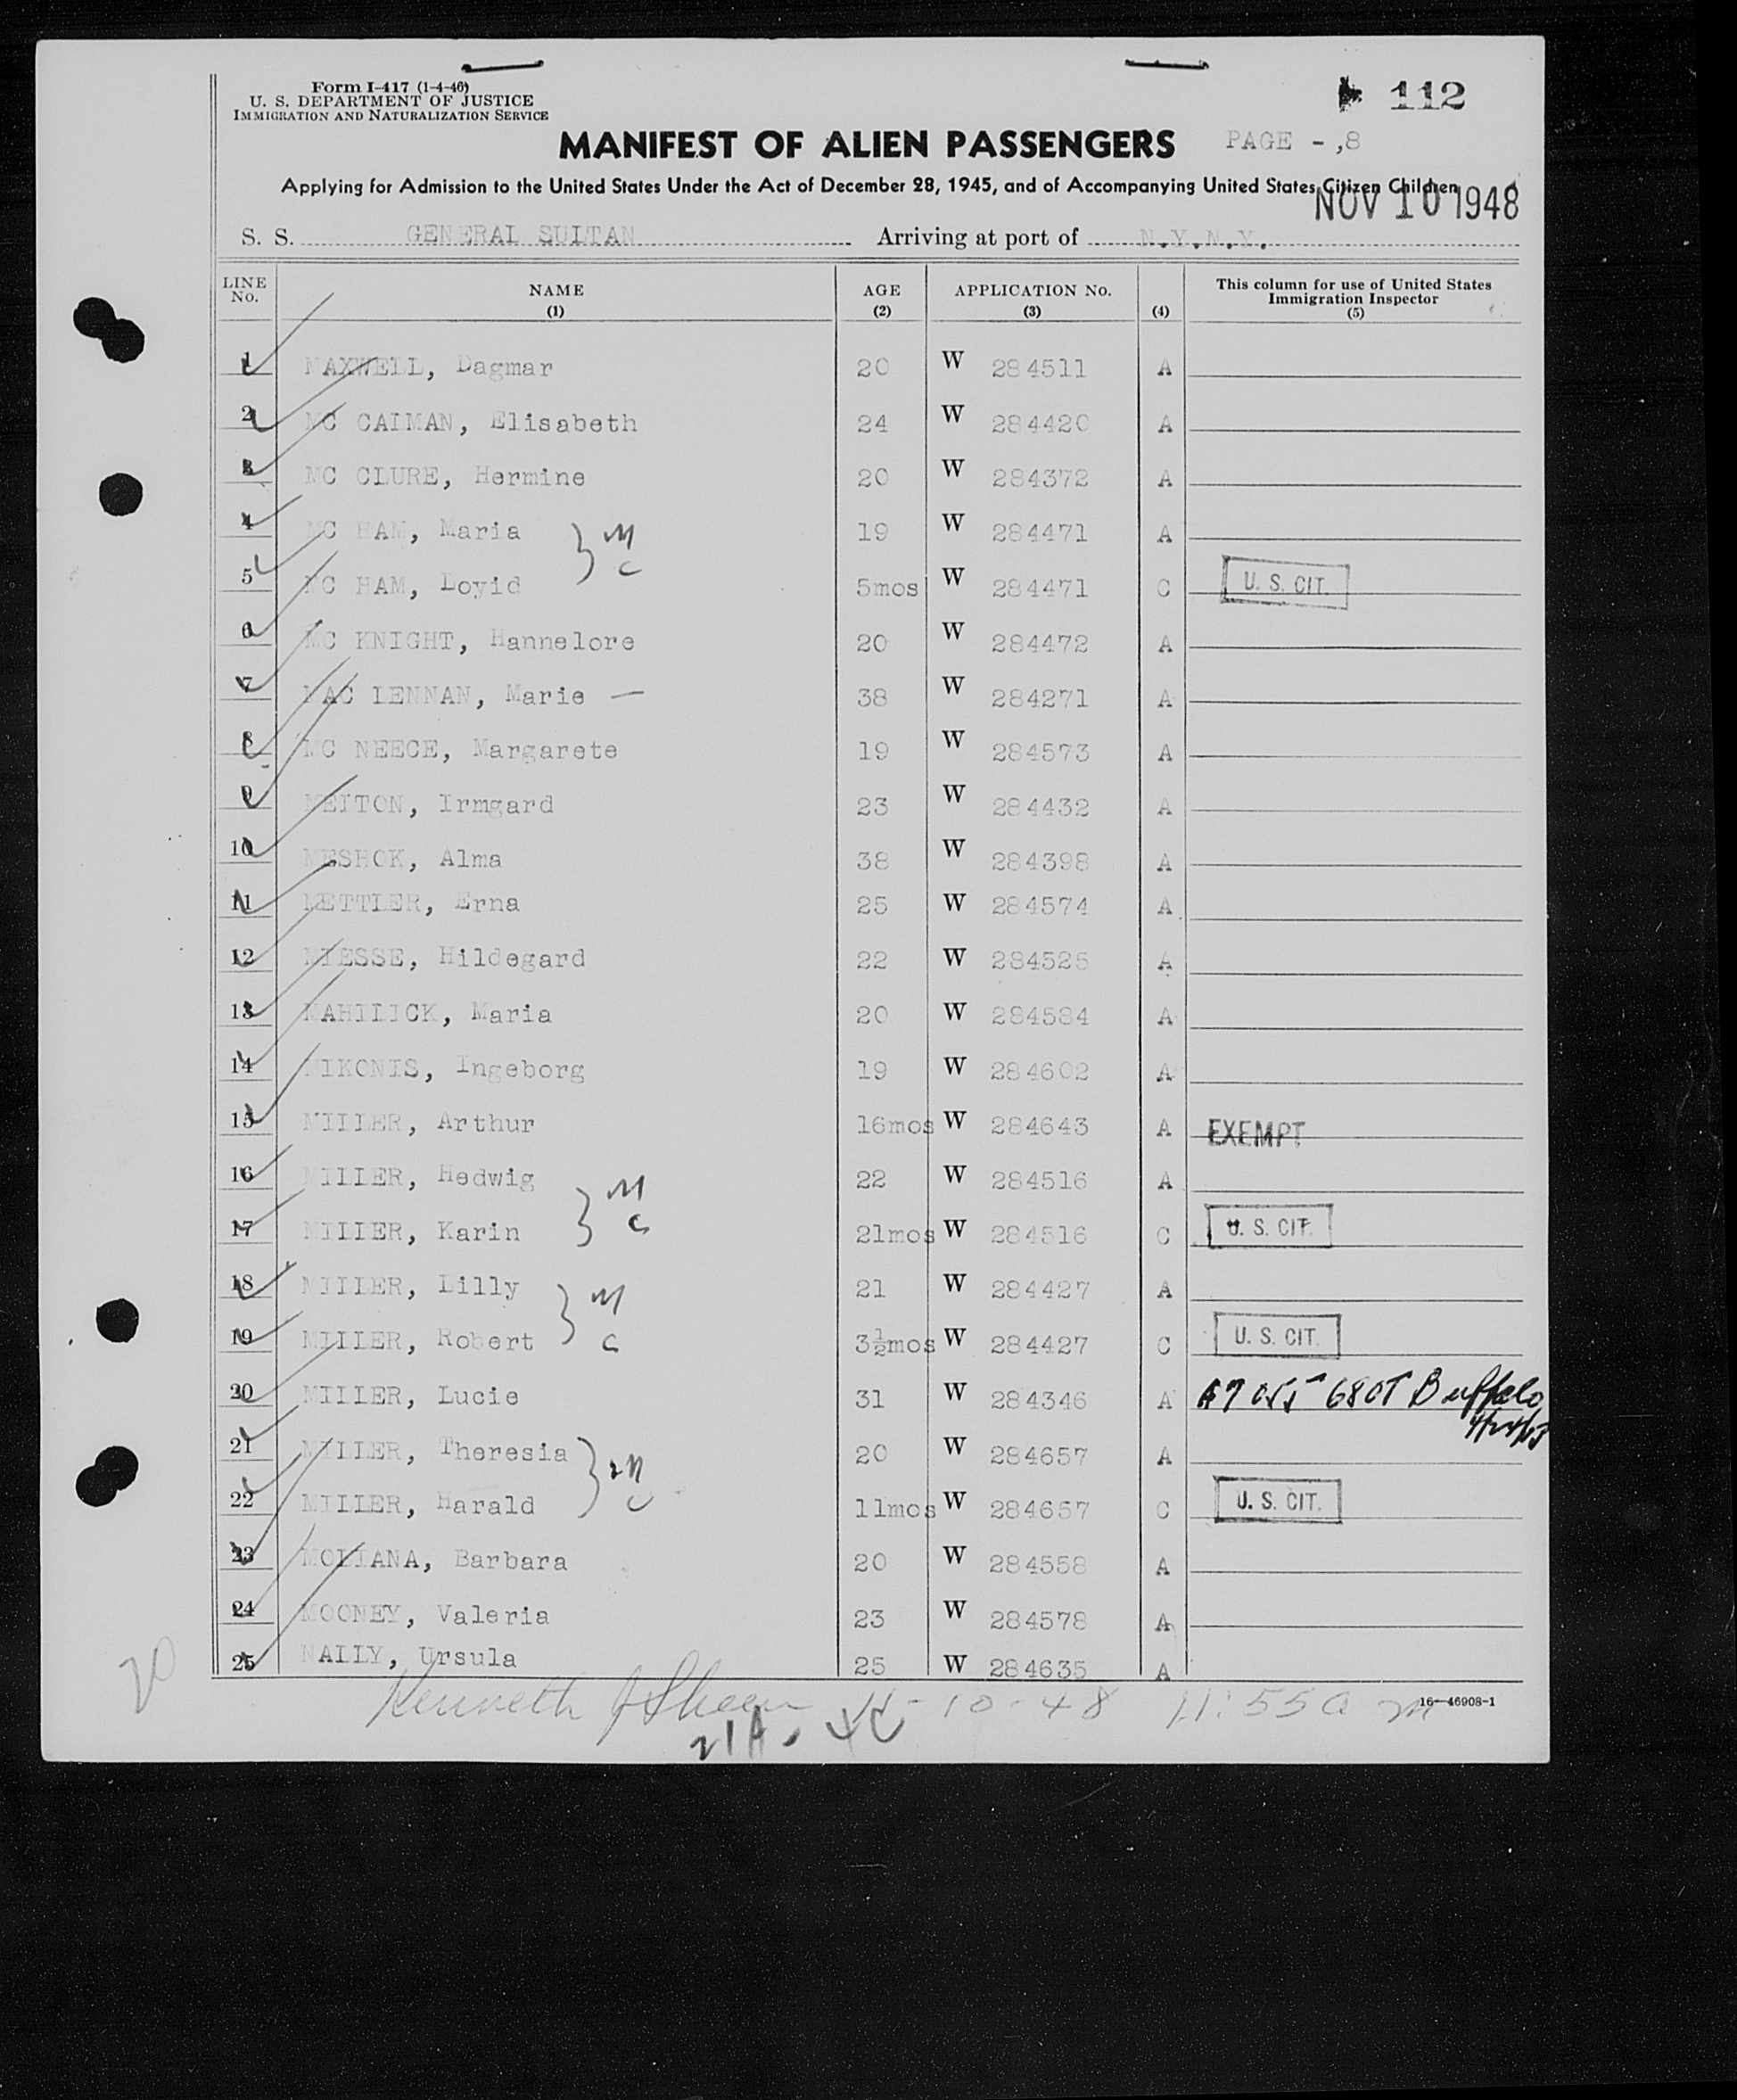 Form I-417 (1-4-46)
U. S. DEPARTMENT OF JUSTICE
IMMIGRATION AND NATURALIZATION SERVICE
112
MANIFEST OF ALIEN PASSENGERS PAGE - ,8
Applying for Admission to the United States Under the Act of December 28, 1945, and of Accompanying United States Citizen Children
NOV 10 1948
S. S. GENERAL SULTAN Arriving at port of N.Y.N.Y.
LINE No. NAME (1) AGE (2) APPLICATION No. (3) (4) This column for use of United States Immigration Inspector (5)
1 MAXWELL, Dagmar 20 W 284511 A
2 MC CAIMAN, Elisabeth 24 W 284420 A
3 MC CLURE, Hermine 20 W 284372 A
4 MC HAM, Maria M 19 W 284471 A
5 MC HAM, Loyid C 5mos W 284471 C U. S. CIT.
6 MC KNIGHT, Hannelore 20 W 284472 A
7 MAC LENNAN, Marie — 38 W 284271 A
8 MC NEECE, Margarete 19 W 284573 A
9 MELTON, Irmgard 23 W 284432 A
10 MESHOK, Alma 38 W 284398 A
11 METTLER, Erna 25 W 284574 A
12 MIESSE, Hildegard 22 W 284525 A
13 MAHILICK, Maria 20 W 284584 A
14 MIKONIS, Ingeborg 19 W 284602 A
15 MILLER, Arthur 16mos W 284643 A EXEMPT
16 MILLER, Hedwig M 22 W 284516 A
17 MILLER, Karin C 21mos W 284516 C U. S. CIT.
18 MILLER, Lilly M 21 W 284427 A
19 MILLER, Robert C 3½mos W 284427 C U. S. CIT.
20 MILLER, Lucie 31 W 284346 A A7 055 680T Buffalo
21 MILLER, Theresia M 20 W 284657 A
22 MILLER, Harald C 11mos W 284657 C U. S. CIT.
23 MOLIANA, Barbara 20 W 284558 A
24 MOONEY, Valeria 23 W 284578 A
25 NALLY, Ursula 25 W 284635 A
20
Kenneth J Sheer 11-10-48 11:55 a m
16—46908-1
21A. 4C